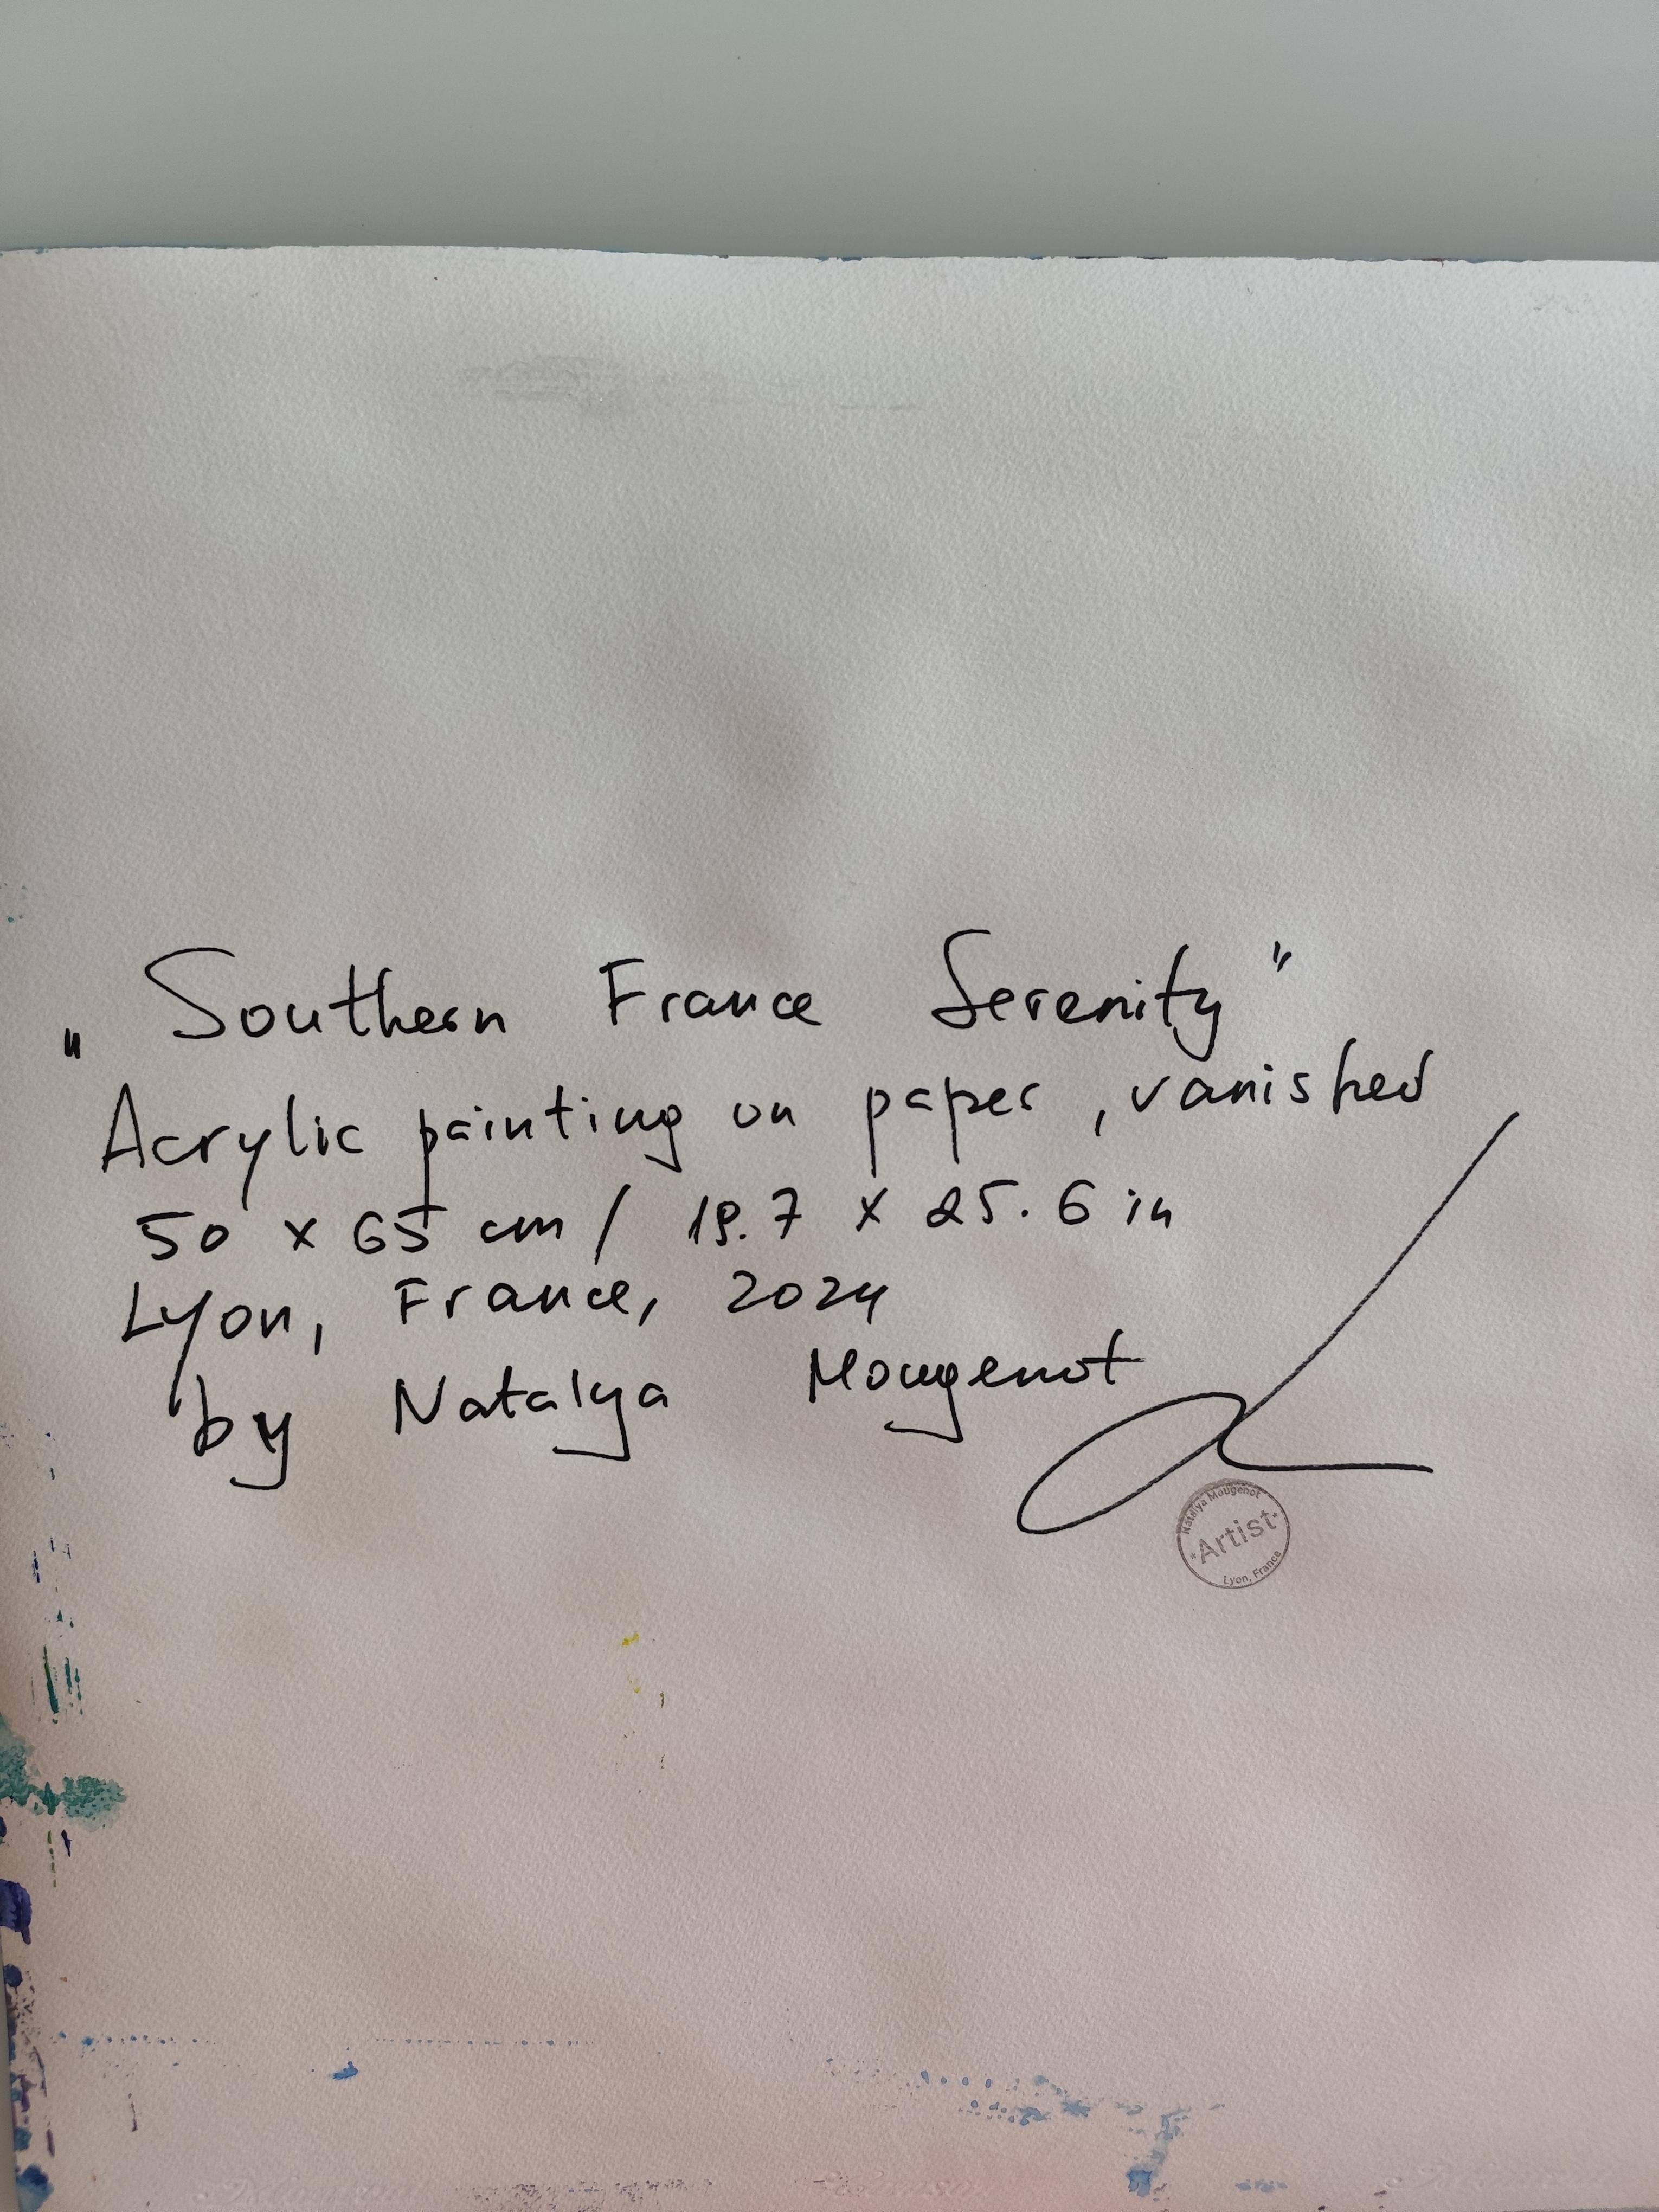 „Southern France Serenity"
Acrylic painting on paper, vanished
50 x 65 cm / 19.7 x 25.6 in
Lyon, France, 2024
by Natalya Mougenot
Natalya Mougenot
*Artist*
Lyon, France